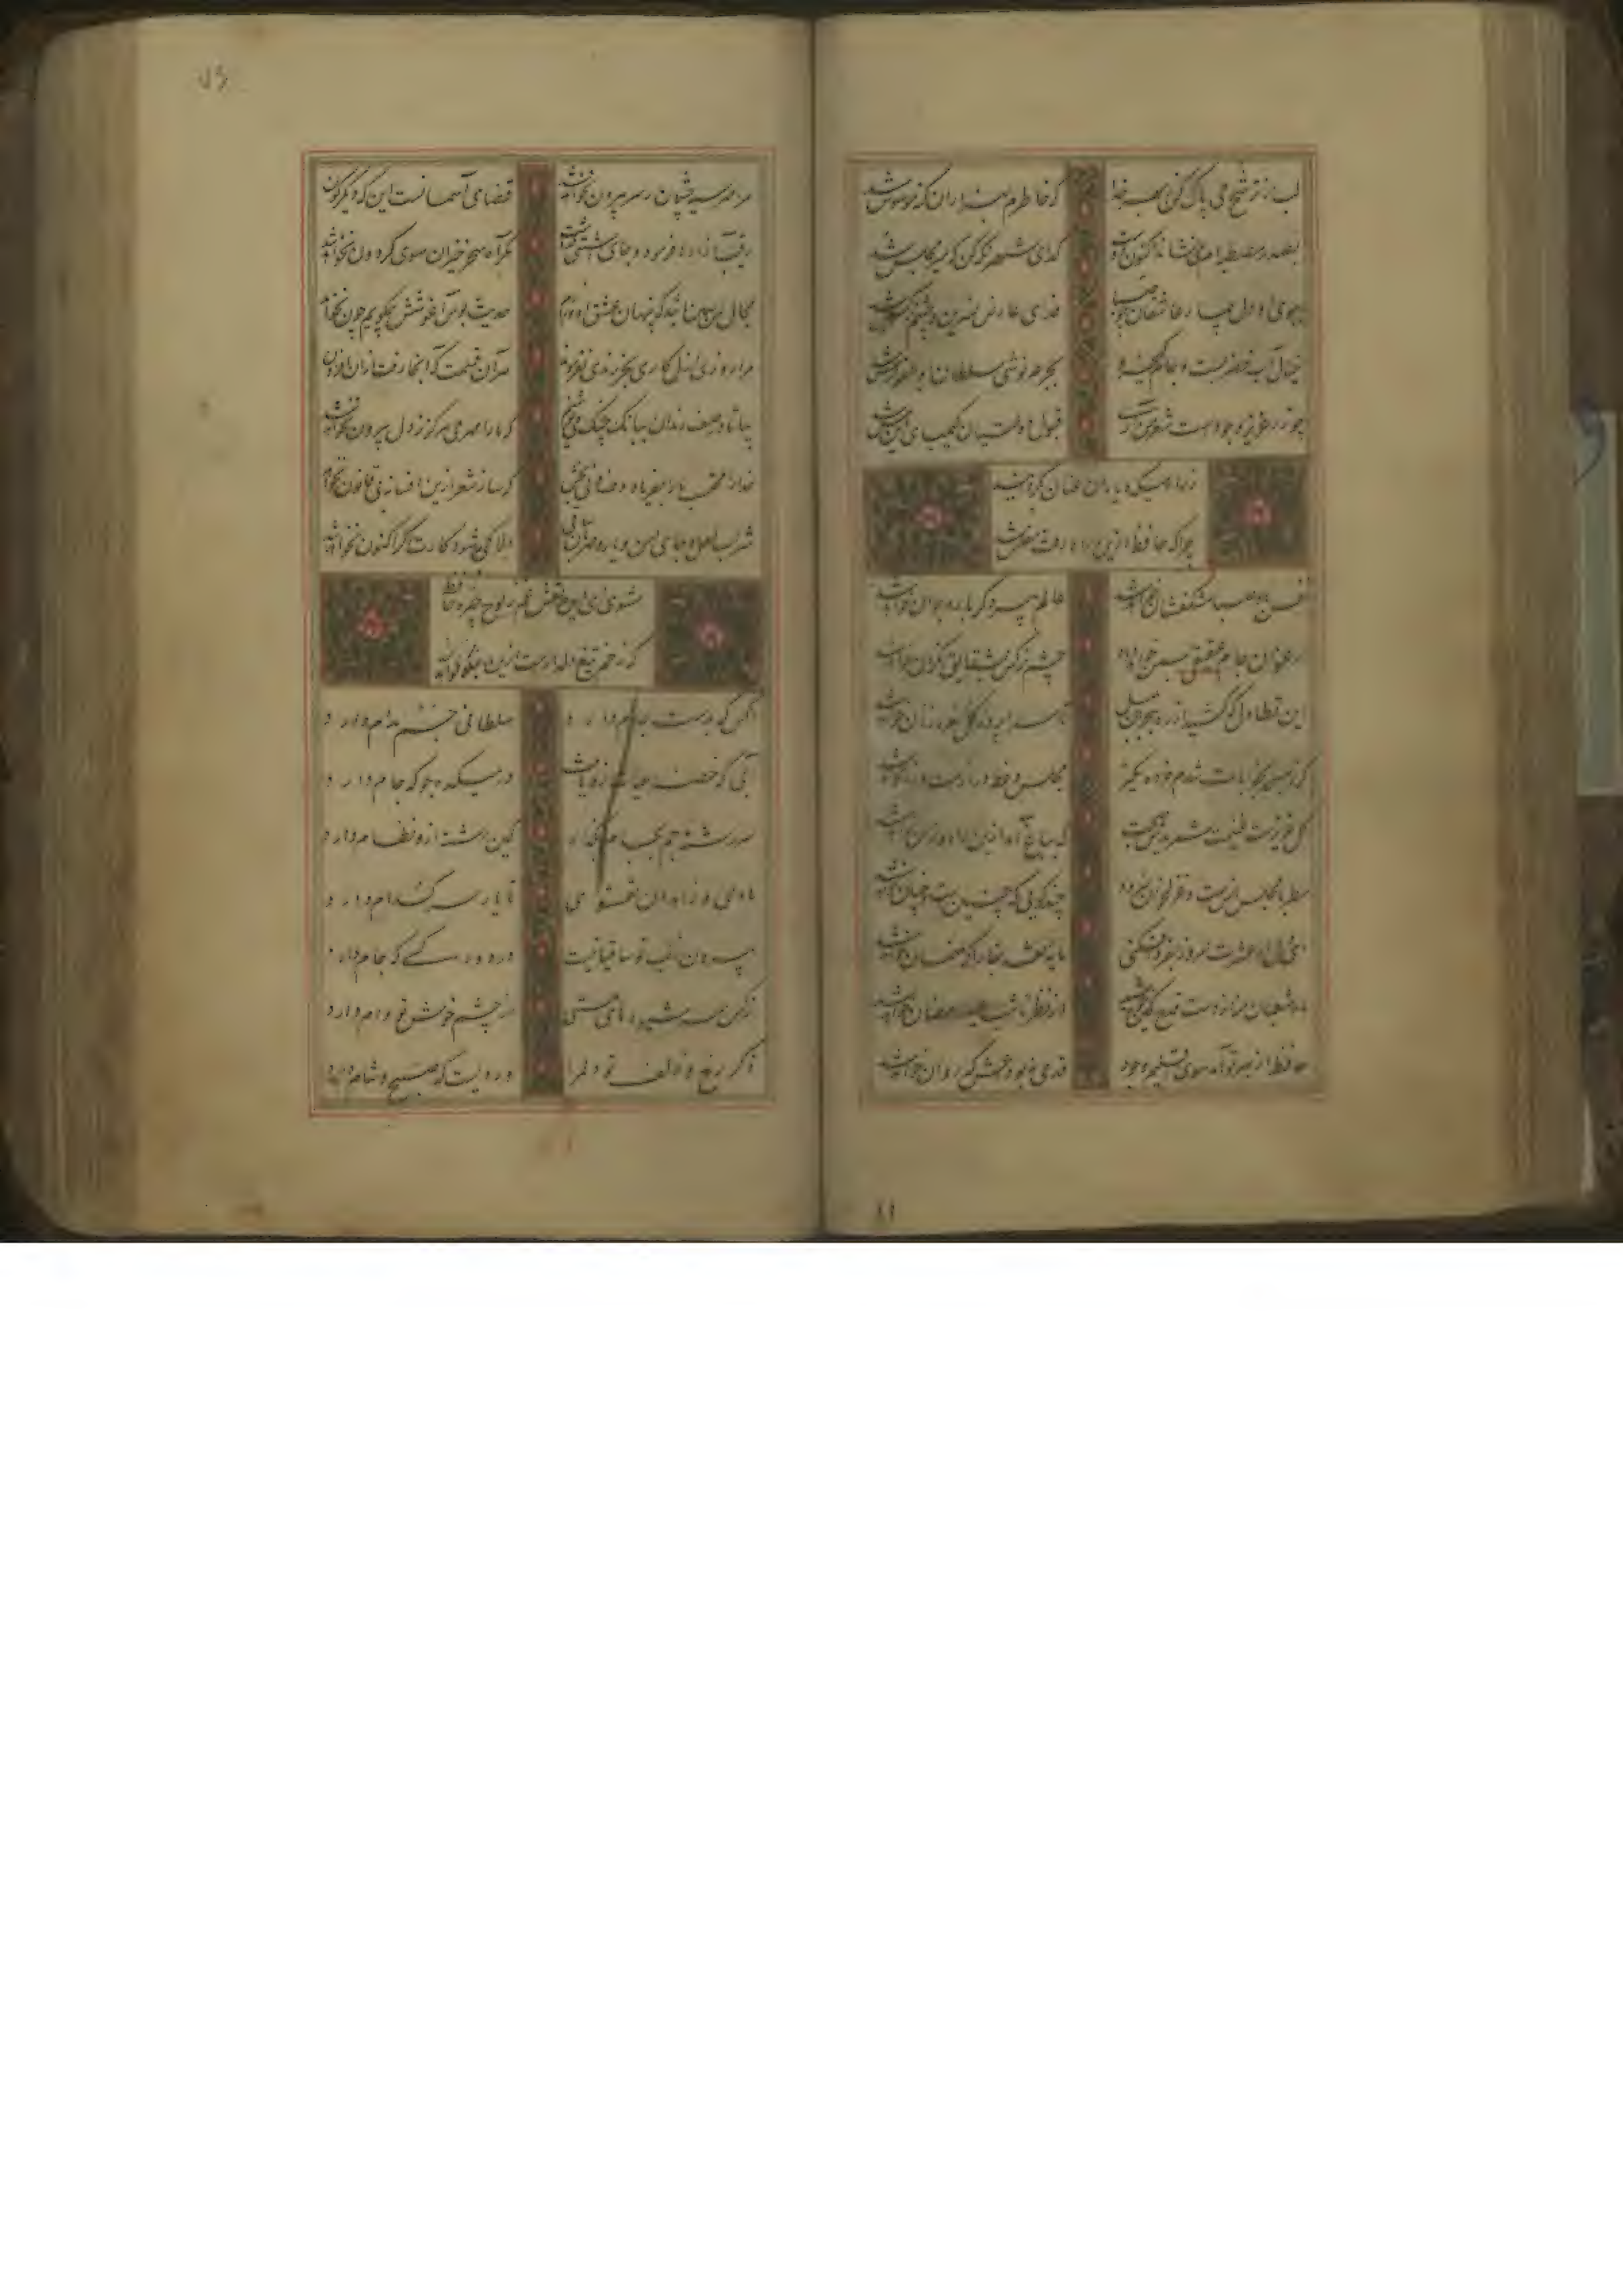 لب از ترشح می پاک کن بهر خدا
که خاطرم بهزاران گنه موسوس شد
بصدر مصطبه ام می نشاند اکنون دوست
گدای شهر نگه کن که میر مجلس شد
ببوی او دل بیمار عاشقان چو صبا
فدای عارض نسرین و چشم نرگس شد
خیال آب خضر بست و جام کیخسرو
بجرعه نوشی سلطان ابوالفوارس شد
چو زر عزیز وجودست شعر من آری
قبول دولتیان کیمیای این مس شد
ز راه میکده یاران عنان بگردانید
چرا که حافظ ازین راه رفت و مفلس شد
نفس باد صبا مشک فشان خواهد شد
عالم پیر دگر باره جوان خواهد شد
ارغوان جام عقیقی بسمن خواهد داد
چشم نرگس بشقایق نگران خواهد شد
این تطاول که کشید از غم هجران بلبل
تا سراپرده گل نعره زنان خواهد شد
گر ز مسجد بخرابات شدم خرده مگیر
مجلس وعظ درازست و زمان خواهد شد
گل عزیزست غنیمت شمریدش صحبت
که بباغ آمد ازین راه و از آن خواهد شد
مطربا مجلس انست غزل خوان و سرود
چند گویی که چنین رفت و چنان خواهد شد
ای دل ار عشرت امروز بفردا فکنی
مایه نقد بقا را که ضمان خواهد شد
ماه شعبان منه از دست قدح کاین خورشید
از نظر تا شب عید رمضان خواهد شد
حافظ از بهر تو آمد سوی اقلیم وجود
قدمی نه بوداعش که روان خواهد شد
مرا مهر سیه چشمان ز سر بیرون نخواهد شد
قضای آسمانست این که دیگرگون
رقیب آزارها فرمود و جای آشتی نگذاشت
مگر آه سحر خیزان سوی گردون نخواهد شد
مجال من همین باشد که پنهان عشق او ورزم
حدیث بوس و آغوشش چگویم چون نخواهد
مرا روز ازل کاری بجز رندی نفرمودند
هر آن قسمت که آنجا رفت از آن افزون
بیا تا در صف رندان ببانگ چنگ می نوشیم
که ما را مهر می هرگز ز دل بیرون نخواهد شد
خدا را محتسب ما را بفریاد دف و نی بخش
که ساز شعر ازین افسانه بی قانون نخواهد
شراب لعل و جای امن و یار مهربان ساقی
دلا کی به شود کارت اگر اکنون نخواهد شد
مشوی ای دیده نقش غم ز لوح چهره حافظ
که زخم تیغ دلدارست و رنگ خون نخواهد شد
آنکس که بدست جام دارد
سلطانی جم مدام دارد
آبی که خضر حیات ازو یافت
در میکده جو که جام دارد
سررشته جم بجام بگذار
کین رشته ازو نظام دارد
ما و می و زاهدان و تقوی
تا یار سر کدام دارد
بیرون ز لب تو ساقیا نیست
در دور کسی که جام دارد
نرگس همه شیوهای مستی
از چشم خوش تو وام دارد
ذکر رخ و زلف تو دلم را
وردیست که صبح و شام دارد